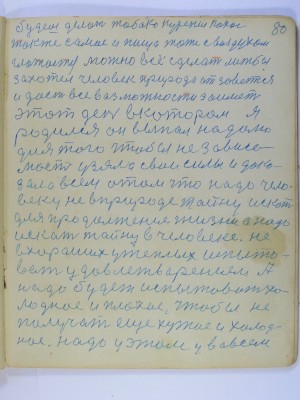 80
будем делат табако курении Такое
также самае и пища тоже с воздухом
можно всё сделат
захотел человек природа отзовется
и даст все возможности
этот ден в котором я
родился он выпал надолю
для того чтобы не зависи-
мост узял свои силы и дока-
зал всем о том что надо чело-
веку не в природе тайну искат
для продолжения жизни а надо
искат тайну в человеке. не
в хороших у теплых
удовлетварением А
надо будет ха-
лодное и плохое, чтобы не
получат еще хужае и холод-
ное. надо у этом у в всем